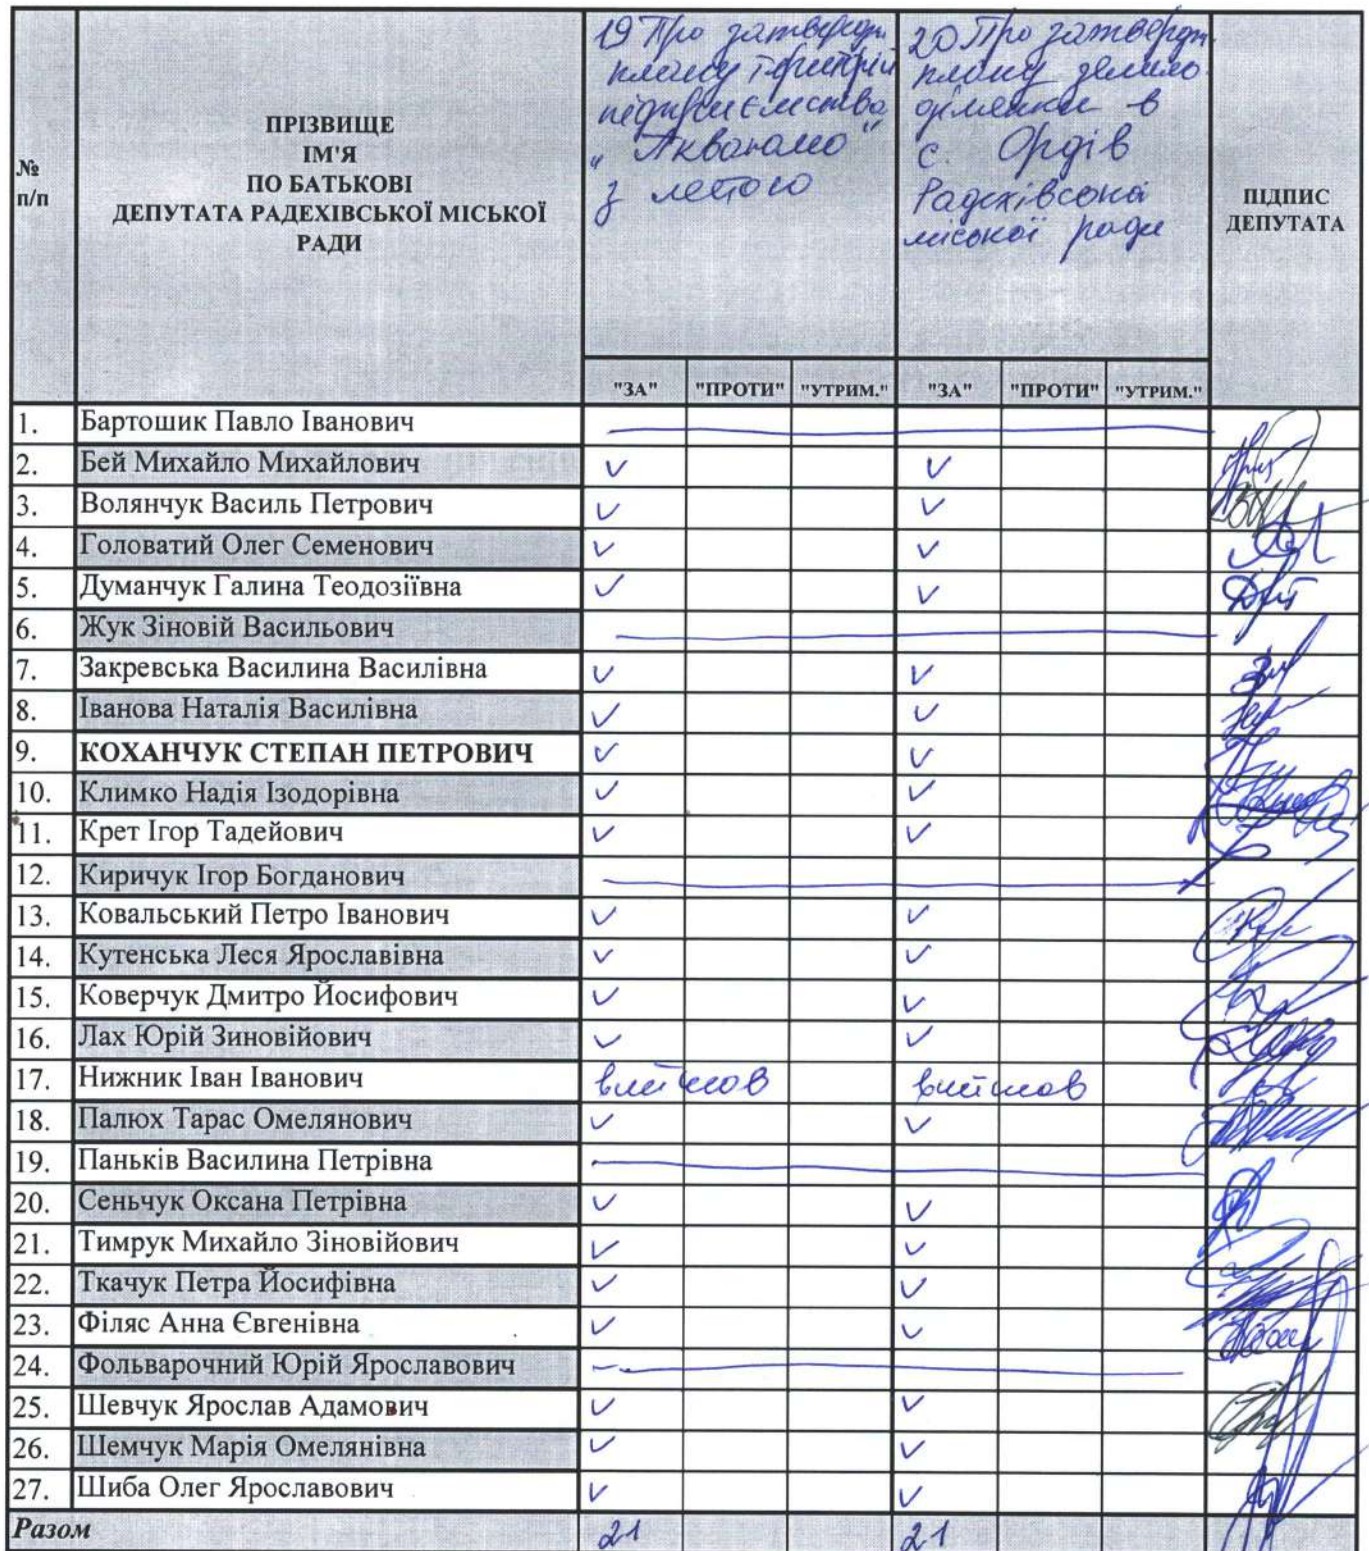 №
п/п
ПРІЗВИЩЕ
ІМ'Я
ПО БАТЬКОВІ
ДЕПУТАТА РАДЕХІВСЬКОЇ МІСЬКОЇ
РАДИ
19 Про затвердж.
плану території
підприємства
"Аквана
з
20 Про затвердж
плану
ділянки в
с. Ордів
Радехівської
міської ради
ПІДПИС
ДЕПУТАТА
"ЗА" "ПРОТИ" "УТРИМ." "ЗА" "ПРОТИ" "УТРИМ."
1. Бартошик Павло Іванович
2. Бей Михайло Михайлович ✓ ✓
3. Волянчук Василь Петрович ✓ ✓
4. Головатий Олег Семенович ✓ ✓
5. Думанчук Галина Теодозіївна ✓ ✓
6. Жук Зіновій Васильович
7. Закревська Василина Василівна ✓ ✓
8. Іванова Наталія Василівна ✓ ✓
9. КОХАНЧУК СТЕПАН ПЕТРОВИЧ ✓ ✓
10. Климко Надія Ізодорівна ✓ ✓
11. Крет Ігор Тадейович ✓ ✓
12. Киричук Ігор Богданович
13. Ковальський Петро Іванович ✓ ✓
14. Кутенська Леся Ярославівна ✓ ✓
15. Коверчук Дмитро Йосифович ✓ ✓
16. Лах Юрій Зиновійович ✓ ✓
17. Нижник Іван Іванович вийшов вийшов
18. Палюх Тарас Омелянович ✓ ✓
19. Паньків Василина Петрівна
20. Сеньчук Оксана Петрівна ✓ ✓
21. Тимрук Михайло Зіновійович ✓ ✓
22. Ткачук Петра Йосифівна ✓ ✓
23. Філяс Анна Євгенівна ✓ ✓
24. Фольварочний Юрій Ярославович
25. Шевчук Ярослав Адамович ✓ ✓
26. Шемчук Марія Омелянівна ✓ ✓
27. Шиба Олег Ярославович ✓ ✓
Разом 21 21